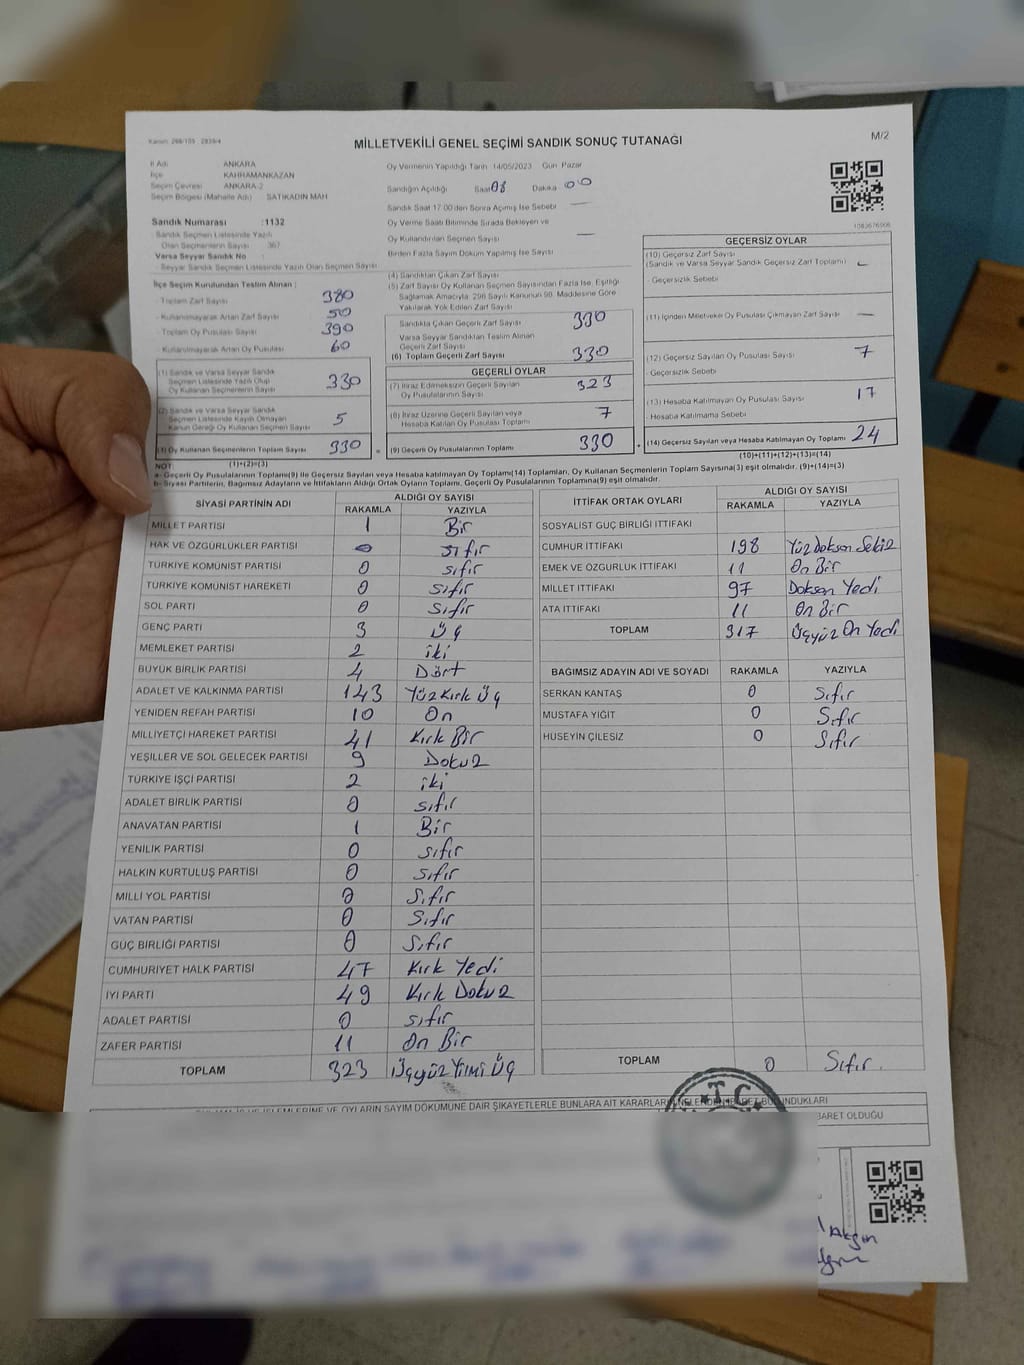 Kanun: 298/105 2839/4
MİLLETVEKİLİ GENEL SEÇİMİ SANDIK SONUÇ TUTANAĞI
M/2
İl Adı ANKARA
İlçe KAHRAMANKAZAN
Seçim Çevresi ANKARA-2
Seçim Bölgesi (Mahalle Adı) SATIKADIN MAH
Sandık Numarası :1132
Sandık Seçmen Listesinde Yazılı
Olan Seçmenlerin Sayısı 367
Varsa Seyyar Sandık No
Seyyar Sandık Seçmen Listesinde Yazılı Olan Seçmen Sayısı
İlçe Seçim Kurulundan Teslim Alınan ;
Toplam Zarf Sayısı 380
Kullanılmayarak Artan Zarf Sayısı 50
Toplam Oy Pusulası Sayısı 390
Kullanılmayarak Artan Oy Pusulası 60
(1) Sandık ve Varsa Seyyar Sandık
Seçmen Listesinde Yazılı Olup
Oy Kullanan Seçmenlerin Sayısı 330
(2) Sandık ve Varsa Seyyar Sandık
Seçmen Listesinde Kayıtlı Olmayan
Kanun Gereği Oy Kullanan Seçmenlerin Sayısı 5
(3) Oy Kullanan Seçmenlerin Toplam Sayısı 330
(1)+(2)=(3)
Oy Vermenin Yapıldığı Tarih 14/05/2023 Gün Pazar
Sandığın Açıldığı Saat 08 Dakika 00
Sandık Saat 17.00'den Sonra Açılmış İse Sebebi —
Oy Verme Saati Bitiminde Sırada Bekleyen ve
Oy Kullandırılan Seçmen Sayısı —
Birden Fazla Sayım Döküm Yapılmış İse Sayısı
(4) Sandıktan Çıkan Zarf Sayısı
(5) Zarf Sayısı Oy Kullanan Seçmen Sayısından Fazla İse, Eşitliği
Sağlamak Amacıyla; 298 Sayılı Kanunun 98. Maddesine Göre
Yakılarak Yok Edilen Zarf Sayısı
Sandıkta Çıkan Geçerli Zarf Sayısı 330
Varsa Seyyar Sandıktan Teslim Alınan
Geçerli Zarf Sayısı
(6) Toplam Geçerli Zarf Sayısı 330
GEÇERLİ OYLAR
(7) İtiraz Edilmeksizin Geçerli Sayılan
Oy Pusulalarının Sayısı 323
(8) İtiraz Üzerine Geçerli Sayılan veya
Hesaba Katılan Oy Pusulası Toplamı 7
= (9) Geçerli Oy Pusulalarının Toplamı 330 +
1083676506
GEÇERSİZ OYLAR
(10) Geçersiz Zarf Sayısı
(Sandık ve Varsa Seyyar Sandık Geçersiz Zarf Toplamı) —
- Geçersizlik Sebebi
(11) İçinden Milletvekili Oy Pusulası Çıkmayan Zarf Sayısı —
(12) Geçersiz Sayılan Oy Pusulası Sayısı 7
- Geçersizlik Sebebi
(13) Hesaba Katılmayan Oy Pusulası Sayısı 17
- Hesaba Katılmama Sebebi
(14) Geçersiz Sayılan veya Hesaba Katılmayan Oy Toplamı 24
(10)+(11)+(12)+(13)=(14)
NOT:
a- Geçerli Oy Pusulalarının Toplamı(9) ile Geçersiz Sayılan veya Hesaba katılmayan Oy Toplamı(14) Toplamları, Oy Kullanan Seçmenlerin Toplam Sayısına(3) eşit olmalıdır. (9)+(14)=(3)
b- Siyasi Partilerin, Bağımsız Adayların ve İttifakların Aldığı Ortak Oyların Toplamı, Geçerli Oy Pusulalarının Toplamına(9) eşit olmalıdır.
SİYASİ PARTİNİN ADI ALDIĞI OY SAYISI
RAKAMLA YAZIYLA
MİLLET PARTİSİ 1 Bir
HAK VE ÖZGÜRLÜKLER PARTİSİ 0 sıfır
TÜRKİYE KOMÜNİST PARTİSİ 0 sıfır
TÜRKİYE KOMÜNİST HAREKETİ 0 sıfır
SOL PARTİ 0 Sıfır
GENÇ PARTİ 3 üç
MEMLEKET PARTİSİ 2 iki
BÜYÜK BİRLİK PARTİSİ 4 Dört
ADALET VE KALKINMA PARTİSİ 143 Yüz Kırk Üç
YENİDEN REFAH PARTİSİ 10 On
MİLLİYETÇİ HAREKET PARTİSİ 41 Kırk Bir
YEŞİLLER VE SOL GELECEK PARTİSİ 9 Dokuz
TÜRKİYE İŞÇİ PARTİSİ 2 iki
ADALET BİRLİK PARTİSİ 0 sıfır
ANAVATAN PARTİSİ 1 Bir
YENİLİK PARTİSİ 0 sıfır
HALKIN KURTULUŞ PARTİSİ 0 sıfır
MİLLİ YOL PARTİSİ 0 Sıfır
VATAN PARTİSİ 0 Sıfır
GÜÇ BİRLİĞİ PARTİSİ 0 Sıfır
CUMHURİYET HALK PARTİSİ 47 Kırk Yedi
İYİ PARTİ 49 Kırk Dokuz
ADALET PARTİSİ 0 sıfır
ZAFER PARTİSİ 11 On Bir
TOPLAM 323 Üçyüz Yirmi Üç
İTTİFAK ORTAK OYLARI ALDIĞI OY SAYISI
RAKAMLA YAZIYLA
SOSYALİST GÜÇ BİRLİĞİ İTTİFAKI
CUMHUR İTTİFAKI 198 Yüz Doksan Sekiz
EMEK VE ÖZGÜRLÜK İTTİFAKI 11 On Bir
MİLLET İTTİFAKI 97 Doksan Yedi
ATA İTTİFAKI 11 On Bir
TOPLAM 317 Üçyüz On Yedi
BAĞIMSIZ ADAYIN ADI VE SOYADI RAKAMLA YAZIYLA
SERKAN KANTAŞ 0 Sıfır
MUSTAFA YİĞİT 0 Sıfır
HÜSEYİN ÇİLESİZ 0 Sıfır
TOPLAM 0 Sıfır.
OYLARIN SAYIM DÖKÜMÜNE DAİR ŞİKAYETLERLE BUNLARA AİT KARARLAR
T.C.
BARET OLDUĞU
Akgün